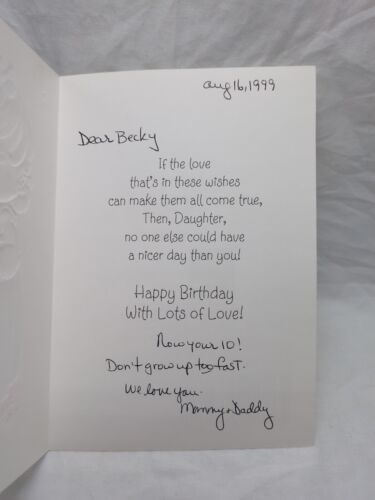 Aug 16, 1999
Dear Becky
If the love
that's in these wishes
can make them all come true,
Then, Daughter,
no one else could have
a nicer day than you!
Happy Birthday
With Lots of Love!
Now your 10!
Don't grow up too fast.
We love you.
Mommy + Daddy